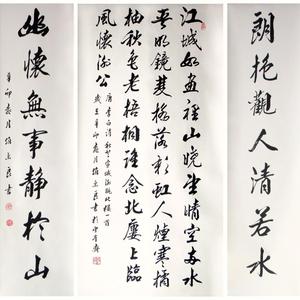 朗抱觀人清若水
江城如畫裡山曉望晴空兩水
夾明鏡雙橋落彩虹人煙寒橘
柚秋色老梧桐誰念北樓上臨
風懷謝公
唐李白詩秋登宣城謝朓北樓一首
歲在辛卯春月 書於
幽懷無事靜於山
辛卯春月 書